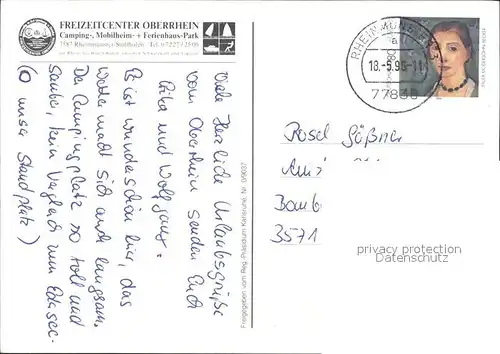 FREIZEITCENTER OBERRHEIN
Camping-, Mobilheim- + Ferienhaus-Park
7587 Rheinmünster-Stollhofen Tel. 07227/2500
Viele Herzliche Urlaubsgrüße
vom Oberrhein senden Euch
und Wolfgang.
Es ist wunderschön hier, das
Wetter macht sich auch langsam,
Der Campingplatz ist toll und
sauber, kein Vergleich zum Edersee.
(o unser Standplatz)
Freigegeben vom Reg.-Präsidium Karlsruhe, Nr. 0/9037
RHEINMÜNSTER
18.-5.96-11
77836
Rosel Süßner
Bamb
3571
privacy protection
Datenschutz